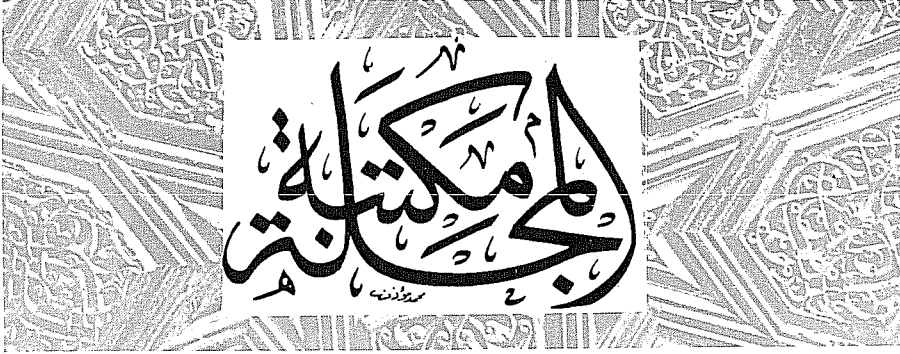 مكتبة المجلة